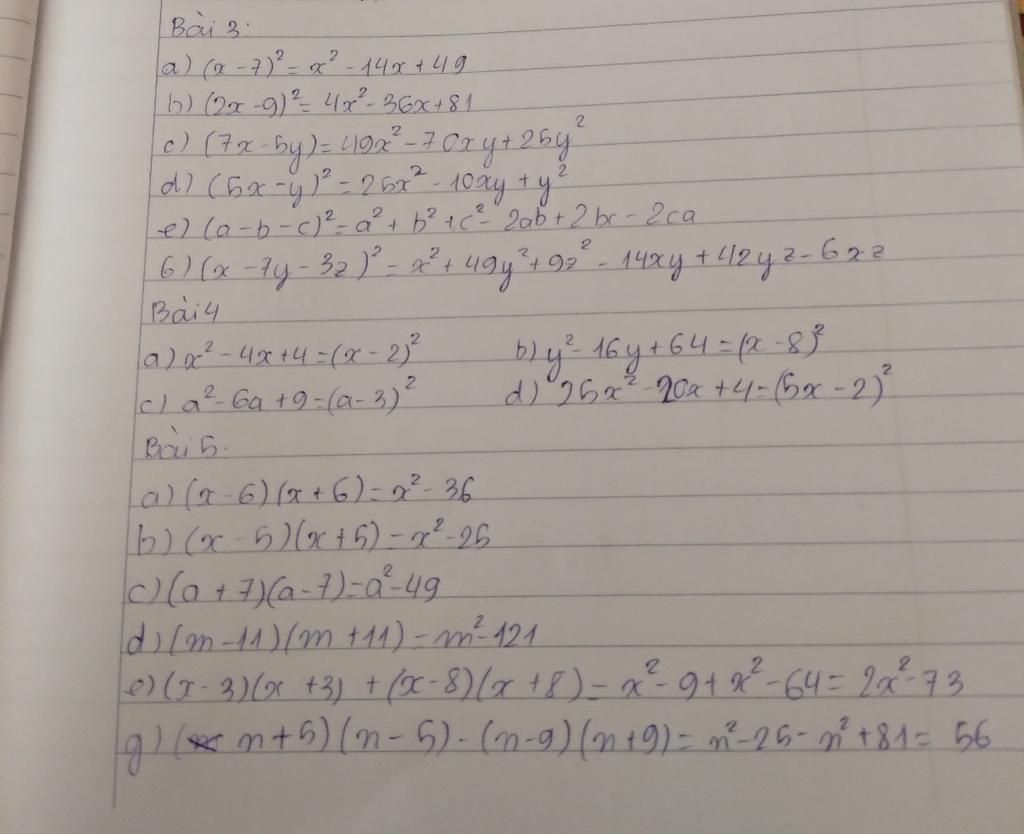 Bài 3:
a) (x-7)² = x² - 14x + 49
b) (2x-9)² = 4x² - 36x + 81
c) (7x-5y) = 49x² - 70xy + 25y²
d) (5x-y)² = 25x² - 10xy + y²
e) (a-b-c)² = a² + b² + c² - 2ab + 2bc - 2ca
6) (x - 7y - 3z)² = x² + 49y² + 9z² - 14xy + 42yz - 6xz
Bài 4
a) x² - 4x + 4 = (x-2)² b) y² - 16y + 64 = (x-8)²
c) a² - 6a + 9 = (a-3)² d) 25x² - 20x + 4 = (5x-2)²
Bài 5.
a) (x-6)(x+6) = x² - 36
b) (x-5)(x+5) = x² - 25
c) (a+7)(a-7) = a² - 49
d) (m-11)(m+11) = m² - 121
e) (x-3)(x+3) + (x-8)(x+8) = x² - 9 + x² - 64 = 2x² - 73
g) (n+5)(n-5) - (n-9)(n+9) = n² - 25 - n² + 81 = 56